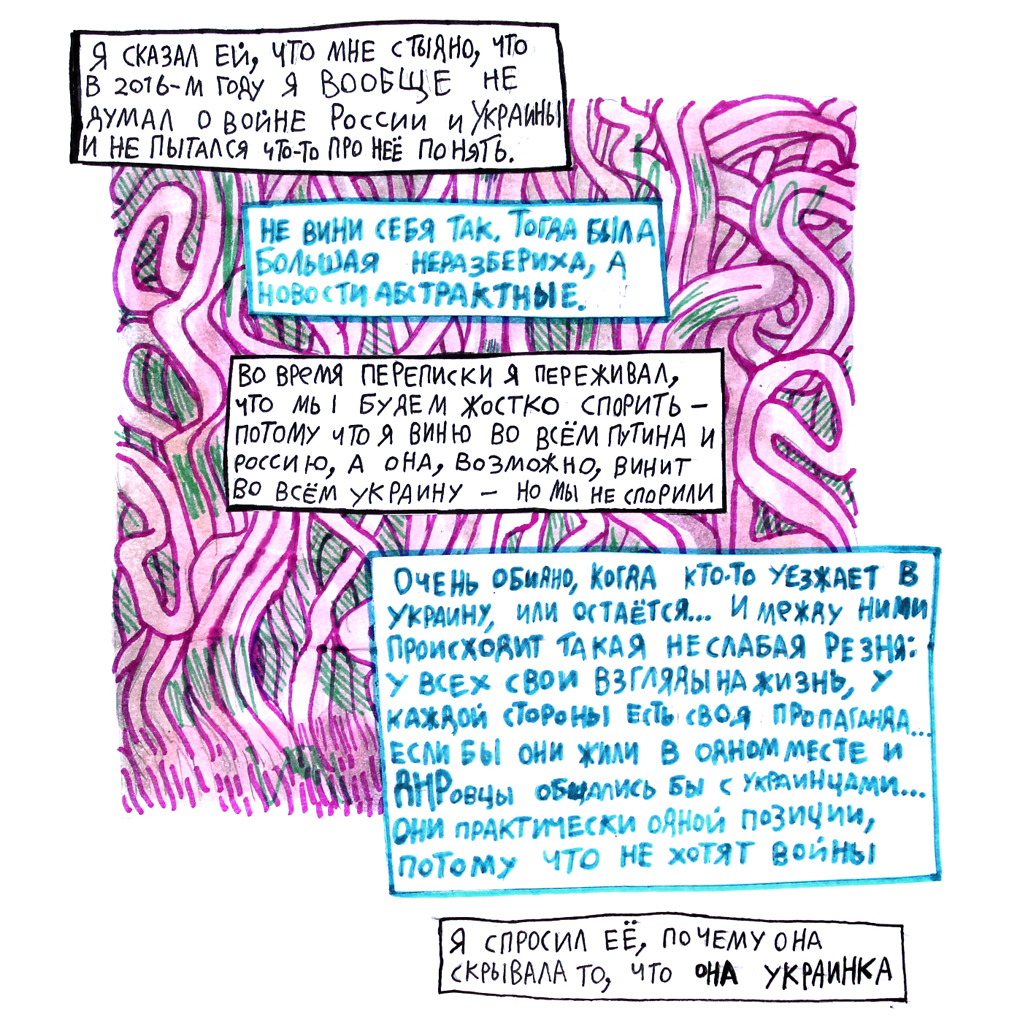 Я СКАЗАЛ ЕЙ, ЧТО МНЕ СТЫДНО, ЧТО
В 2016-М ГОДУ Я ВООБЩЕ НЕ
ДУМАЛ О ВОЙНЕ РОССИИ И УКРАИНЫ
И НЕ ПЫТАЛСЯ ЧТО-ТО ПРО НЕЁ ПОНЯТЬ.
НЕ ВИНИ СЕБЯ ТАК. ТОГДА БЫЛА
БОЛЬШАЯ НЕРАЗБЕРИХА, А
НОВОСТИ АБСТРАКТНЫЕ.
ВО ВРЕМЯ ПЕРЕПИСКИ Я ПЕРЕЖИВАЛ,
ЧТО МЫ БУДЕМ ЖОСТКО СПОРИТЬ –
ПОТОМУ ЧТО Я ВИНЮ ВО ВСЁМ ПУТИНА И
РОССИЮ, А ОНА, ВОЗМОЖНО, ВИНИТ
ВО ВСЁМ УКРАИНУ – НО МЫ НЕ СПОРИЛИ
ОЧЕНЬ ОБИДНО, КОГДА КТО-ТО УЕЗЖАЕТ В
УКРАИНУ, ИЛИ ОСТАЁТСЯ... И МЕЖДУ НИМИ
ПРОИСХОДИТ ТАКАЯ НЕСЛАБАЯ РЕЗНЯ:
У ВСЕХ СВОИ ВЗГЛЯДЫ НА ЖИЗНЬ, У
КАЖДОЙ СТОРОНЫ ЕСТЬ СВОЯ ПРОПАГАНДА...
ЕСЛИ БЫ ОНИ ЖИЛИ В ОДНОМ МЕСТЕ И
ДНРОВЦЫ ОБЩАЛИСЬ БЫ С УКРАИНЦАМИ...
ОНИ ПРАКТИЧЕСКИ ОДНОЙ ПОЗИЦИИ,
ПОТОМУ ЧТО НЕ ХОТЯТ ВОЙНЫ
Я СПРОСИЛ ЕЁ, ПОЧЕМУ ОНА
СКРЫВАЛА ТО, ЧТО ОНА УКРАИНКА